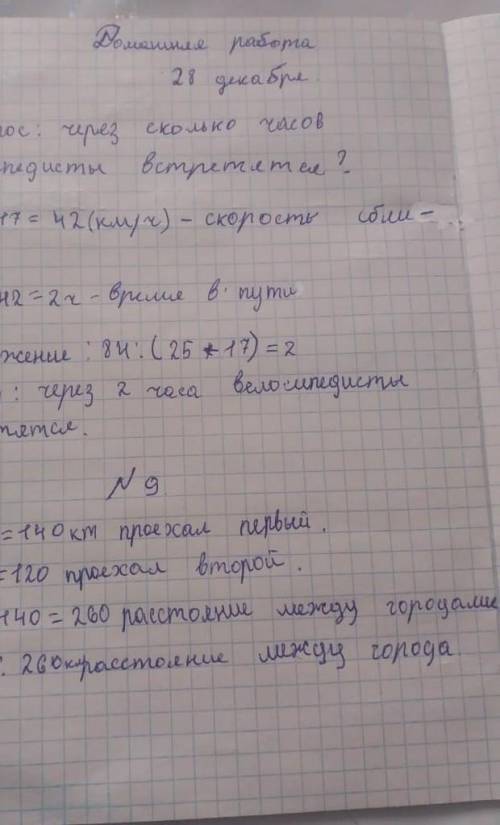 Домашняя работа
28 декабря.
ос: через сколько часов
педисты встретятся?
17 = 42(км/ч) – скорость сбли-
42 = 2ч – время в пути
жение: 84:(25 + 17) = 2
: через 2 часа велосипедисты
тятся.
N 9
= 140 км проехал первый.
= 120 проехал второй.
140 = 260 расстояние между городами
: 260км расстояние между города